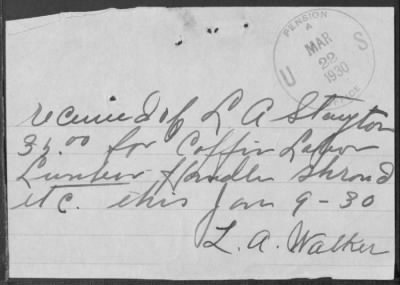 U S PENSION OFFICE
A
MAR
22
1930
received of L A Stayton
35.00 for Coffin Labor
Lumber Handles Shroud
etc. this Jan 9-30
L. A. Walker